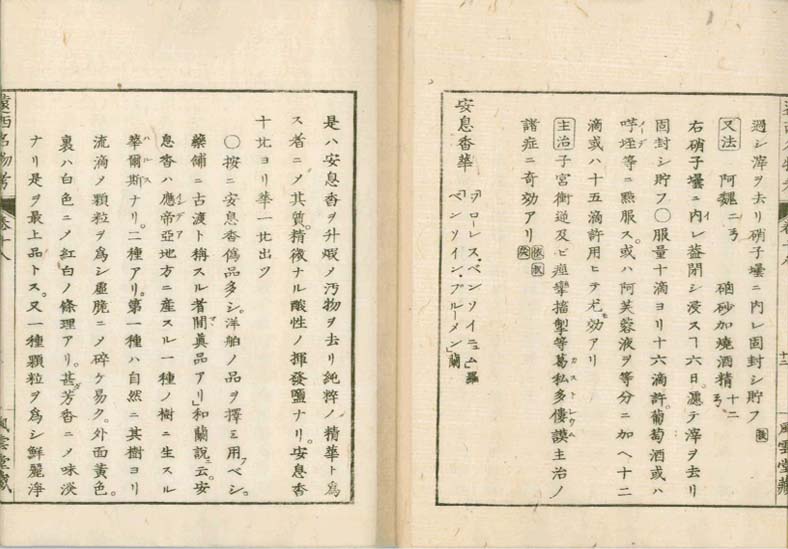 過シ滓ヲ去リ硝子壜ニ内レ固封シ貯フ
又法 阿魏二𠔃 硇砂加焼酒精十二𠔃
右硝子壜ニ内レ葢閉シ浸スヿ六日。漉テ滓ヲ去リ
固封シ貯フ○服量十滴ヨリ十六滴許。葡萄酒或ハ
吁垤等ニ㸃服ス。或ハ阿芙蓉液ヲ等分ニ加ヘ十二
滴或ハ十五滴許用ヒテ尤モ効アリ
主治子宮衝逆及ビ痙攣搐掣等葛私多僂謨主治ノ
諸症ニ奇効アリ
安息香華 「フローレス・ベンソイニュム」羅
「ベンソイン、ブルーメン」蘭
是ハ安息香ヲ升煆メ汚物ヲ去リ純粋ノ精華ト為
ス者ニメ其質。精微ナル酸性ノ揮發鹽ナリ。安息香
十比ヨリ華一比出ツ
○按ニ安息香偽品多シ。洋舶ノ品ヲ擇ミ用フベシ。
藥舗ニ古渡ト稱スル者間眞品アリ」和蘭說ニ云。安
息香ハ應帝亞地方ニ産スル一種ノ樹ニ生スル
華爾斯ナリ。二種アリ。第一種ハ自然ニ其樹ヨリ
流滴メ顆粒ヲ為シ虚脆ニメ碎ケ易ク。外面黄色。
裏ハ白色ニメ紅白ノ條理アリ。甚ダ芳香ニメ味淡
ナリ是ヲ最上品トス。又一種顆粒ヲ為シ鮮麗淨
遠西名物考 卷十八 風雲堂藏